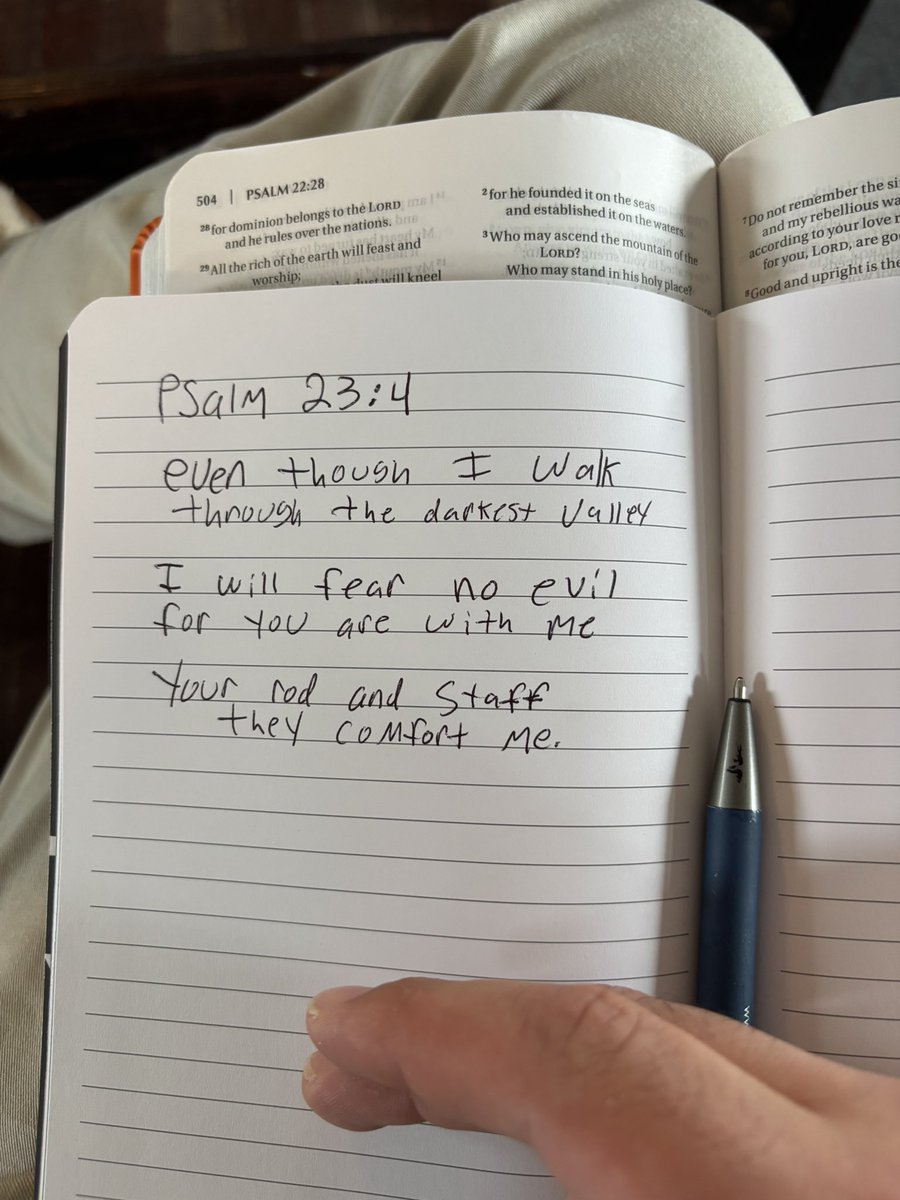 504 | PSALM 22:28
28 for dominion belongs to the LORD
and he rules over the nations.
29 All the rich of the earth will feast and
worship;
dust will kneel
2 for he founded it on the seas
and established it on the waters.
3 Who may ascend the mountain of the
LORD?
Who may stand in his holy place?
7 Do not remember the
and my rebellious
according to your love
for you, LORD, are
8 Good and upright is the
Psalm 23:4
even though I walk
through the darkest valley
I will fear no evil
for you are with me
Your rod and staff
they comfort me.